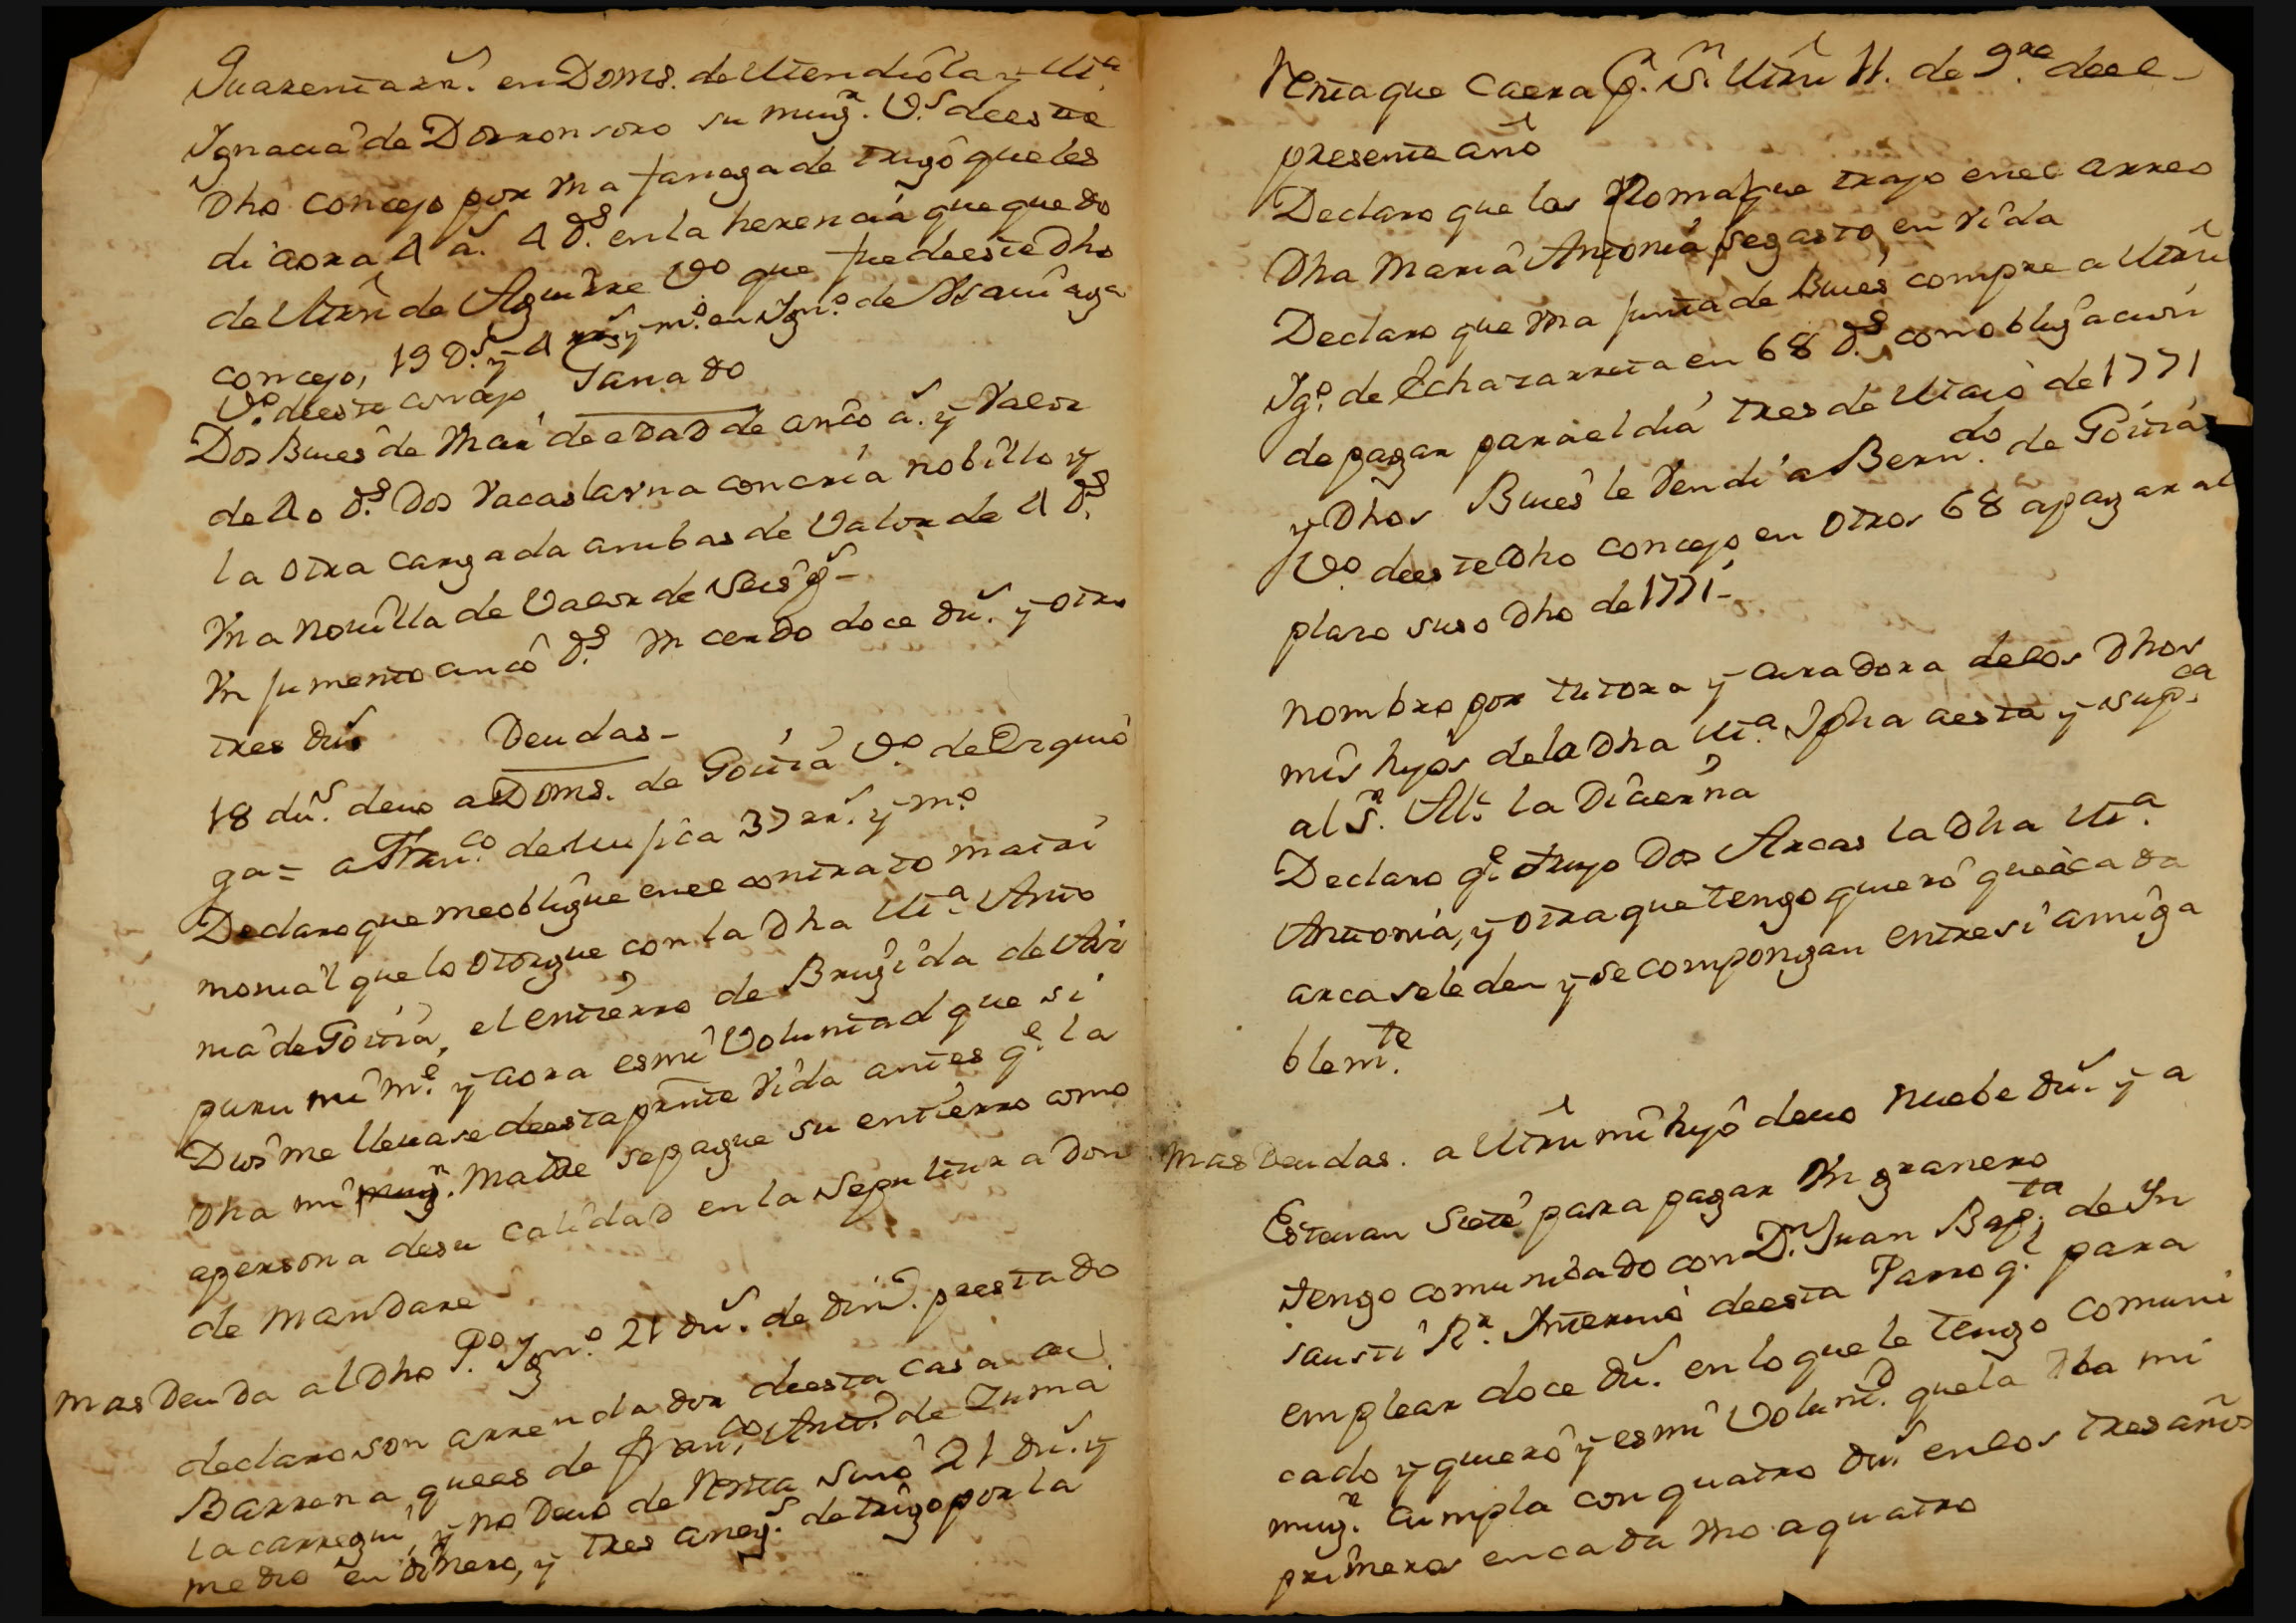 Quarenta rr.s en Doms. de Mendiola y Ma.
Ignacia de Dorronsoro su mugr. Vs. de este
Dho concejo por Vna fanega de trigo que les
di aora 4 as. 4 ds. en la herencia que quedo
de Mrn. de Aguirre Vo que fue de este Dho
concejo, 19 Ds. y 4 rrs y mo. en Igno. de
Vo. de este concejo Ganado
Dos Bues de Mai de edad de cinco as. y Valor
de 40 ds. Dos Vacas la vna con cria nobillo y
la otra cargada ambas de Valor de 4 ds.
Vna Nouilla de Valor de Seis
Vn jumento cinco ds. Vn cerdo doce dus. y otro
tres dus Deudas-
18 dus. deuo a Doms. de Goitia Vo. de Ezquio
ga = a Franco. de 37 rrs. y mo
Declaro que me obligue en el contrato matri
monial que lo otorgue con la Dha Ma. Anto
nia de Goitia, el entierro de Brugida de Ari
puru mi me. y aora es mi Voluntad que si
Dios me lleuase de esta prnte Vida antes qe. la
Dha mi mugr. Madre se pague su entierro como
a persona de su calidad en la Sepultura adon
de mandare
mas Deuda al Dho Po. Igno. 21 dus. de dino. prestado
declaro son arrendador de esta casa de
Barrena que es de Franco. Anto. de Zuma
lacarregui, y no Deuo de Renta Sino 21 dus. y
medio en dinero, y tres anegs. de trigo por la
Renta que caera pr. Sn. Mrn 11. de 9re de el
presente año
Declaro que las que trajo en el arreo
Dha Maria Antonia se gasto en Vida
Declaro que Vna junta de Bues compre a Mrn
Igo. de Echazarreta en 68 ds. con obligacion
de pagar para el dia tres de Maio de 1771
y Dhos Bues le Vendi a Berndo. de Goitia
Vo. de este Dho concejo en otros 68 a pagar al
plazo suso Dho de 1771-
nombro por tutora y curadora de los Dhos
mis hijos de la Dha Ma. Jpha a esta y supca.
al Sr. Al. la Dicierna
Declaro qe. trujo Dos Arcas la Dha Ma.
Antonia, y otra que tengo quiero que a cada
arca se le den y se compongan entre si amiga
blemte.
mas Deudas. a Mrn mi hijo deuo nuebe dus. y a
Estauan Siete para pagar Vn granero
tengo comunicado con Dn. Juan Bapta. de In
sausti Rr. Interino de esta Parroq. para
emplear doce dus. en lo que le tengo comuni
cado y quiero y es mi Volund. que la Dha mi
mugr. cumpla con quatro dus en los tres años
primeros en cada Vno a quatro